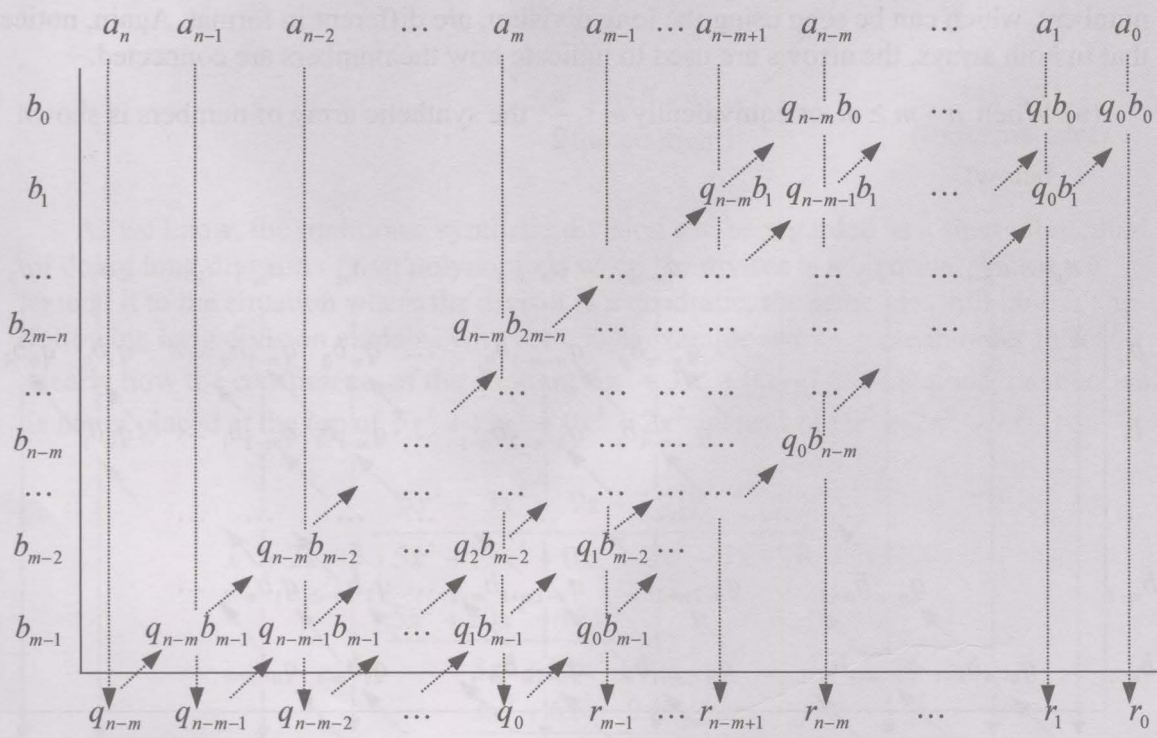 a_n a_{n-1} a_{n-2} ... a_m a_{m-1} ... a_{n-m+1} a_{n-m} ... a_1 a_0
b_0 q_{n-m}b_0 q_1b_0 q_0b_0
b_1 q_{n-m}b_1 q_{n-m-1}b_1 ... q_0b_1
... ... ... ... ... ...
b_{2m-n} q_{n-m}b_{2m-n} ... ... ... ... ...
... ... ... ... ... ...
b_{n-m} ... ... ... ... ... q_0b_{n-m}
... ... ... ... ... ...
b_{m-2} q_{n-m}b_{m-2} ... q_2b_{m-2} q_1b_{m-2} ...
b_{m-1} q_{n-m}b_{m-1} q_{n-m-1}b_{m-1} ... q_1b_{m-1} q_0b_{m-1}
q_{n-m} q_{n-m-1} q_{n-m-2} ... q_0 r_{m-1} ... r_{n-m+1} r_{n-m} ... r_1 r_0